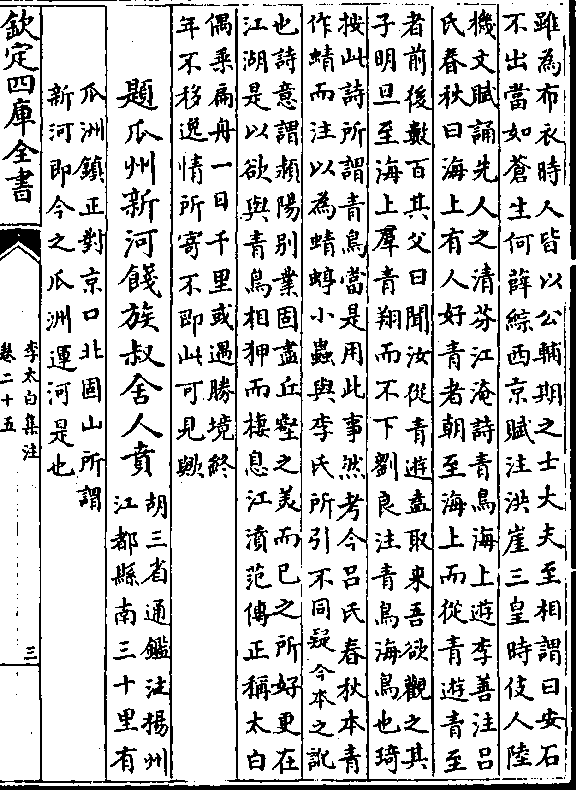 雖為布衣時人皆以公輔期之士大夫至相謂曰安石
不出當如蒼生何薛綜西京賦注洪崖三皇時伎人陸
機文賦誦先人之清芬江淹詩青鳥海上遊李善注吕
氏春秋曰海上有人好青者朝至海上而從青遊青至
者前後數百其父曰聞汝從青遊盍取來吾欲觀之其
子明旦至海上羣青翔而不下劉良注青鳥海鳥也琦
按此詩所謂青鳥當是用此事然考今吕氏春秋本青
作蜻而注以為蜻蝏小蟲與李氏所引不同疑今本之訛
也詩意謂頴陽別業固盡丘壑之美而已之所好更在
江湖是以欲與青鳥相狎而棲息江濆范傳正稱太白
偶乗扁舟一日千里或遇勝境終
年不移逸情所寄不即此可見歟
題瓜州新河餞族叔舍人賁
胡三省通鑑注揚州
江都縣南三十里有
瓜洲鎮正對京口北固山所謂
新河即今之瓜洲運河是也
欽定四庫全書
李太白集注
卷二十五
三